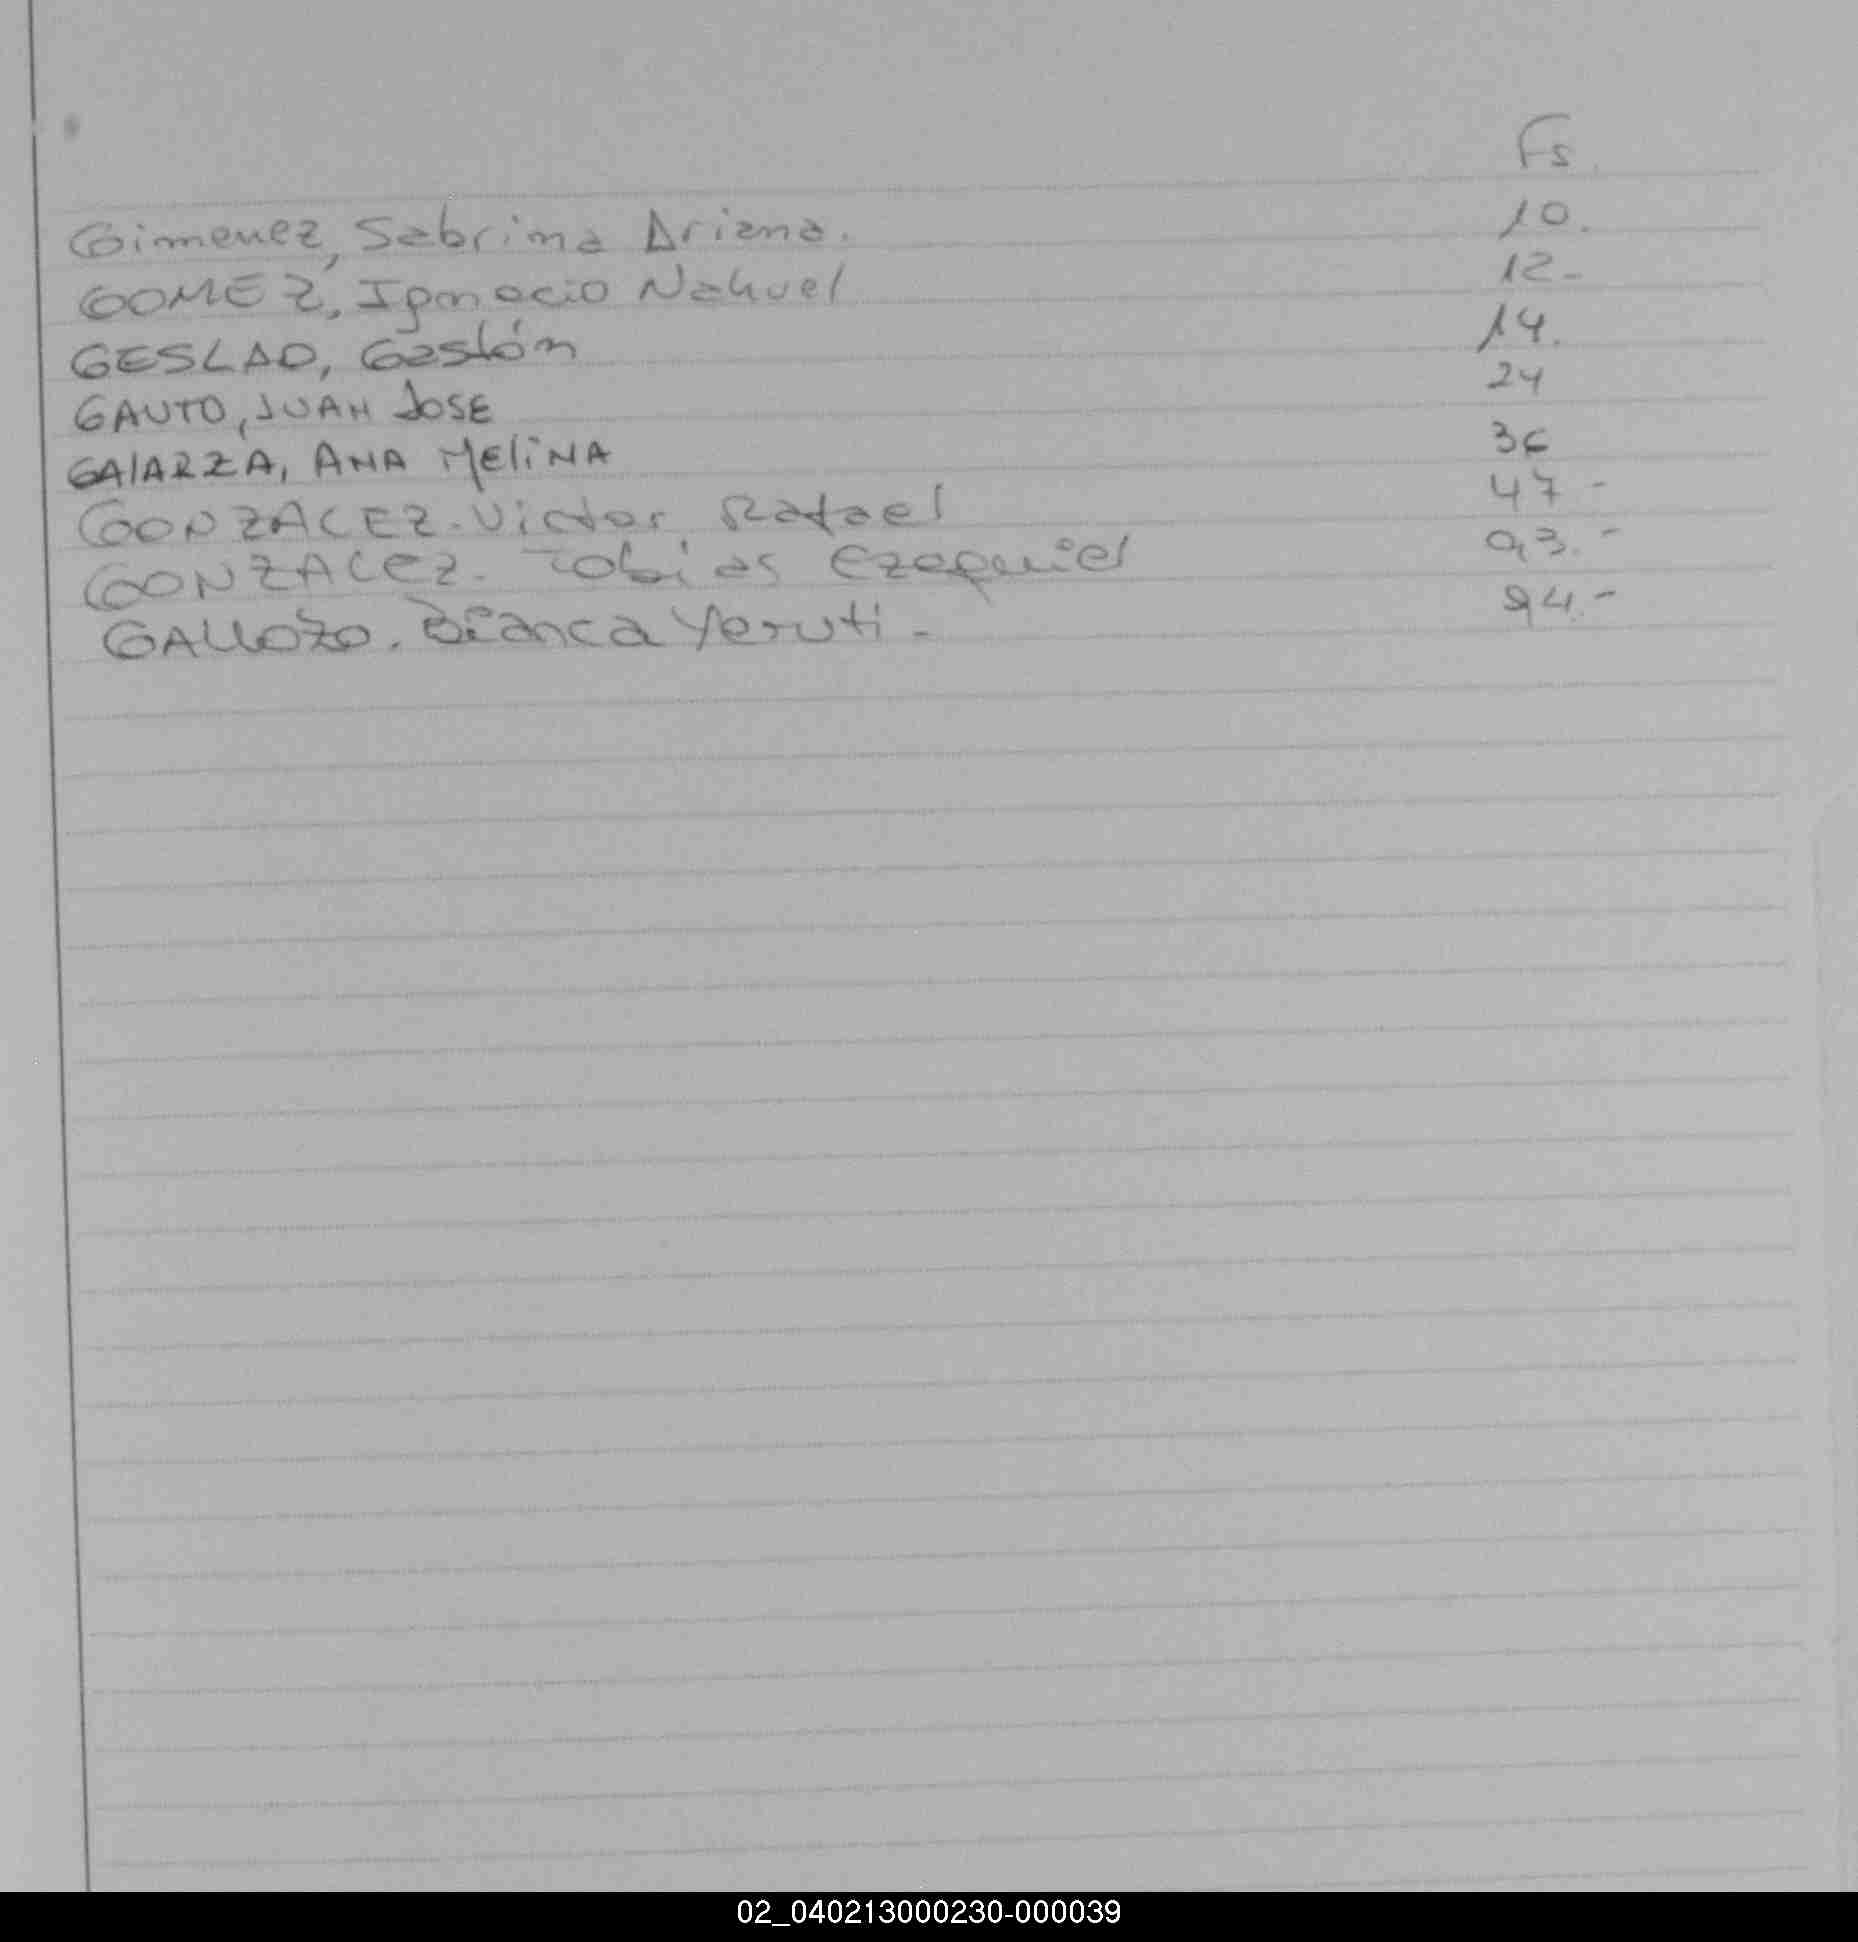 Fs.
Gimenez, Sabrina Ariana. 10.
GOMEZ, Ignacio Nahuel 12-
GESLAO, Gastón 14.
GAUTO, JUAN JOSE 24
GAIARZA, ANA MELINA 36
GONZALEZ. Victor Rafael 47-
GONZALEZ. Tobias Ezequiel 93.-
GALLOZO. Bianca Yeruti- 94.-
02_040213000230-000039